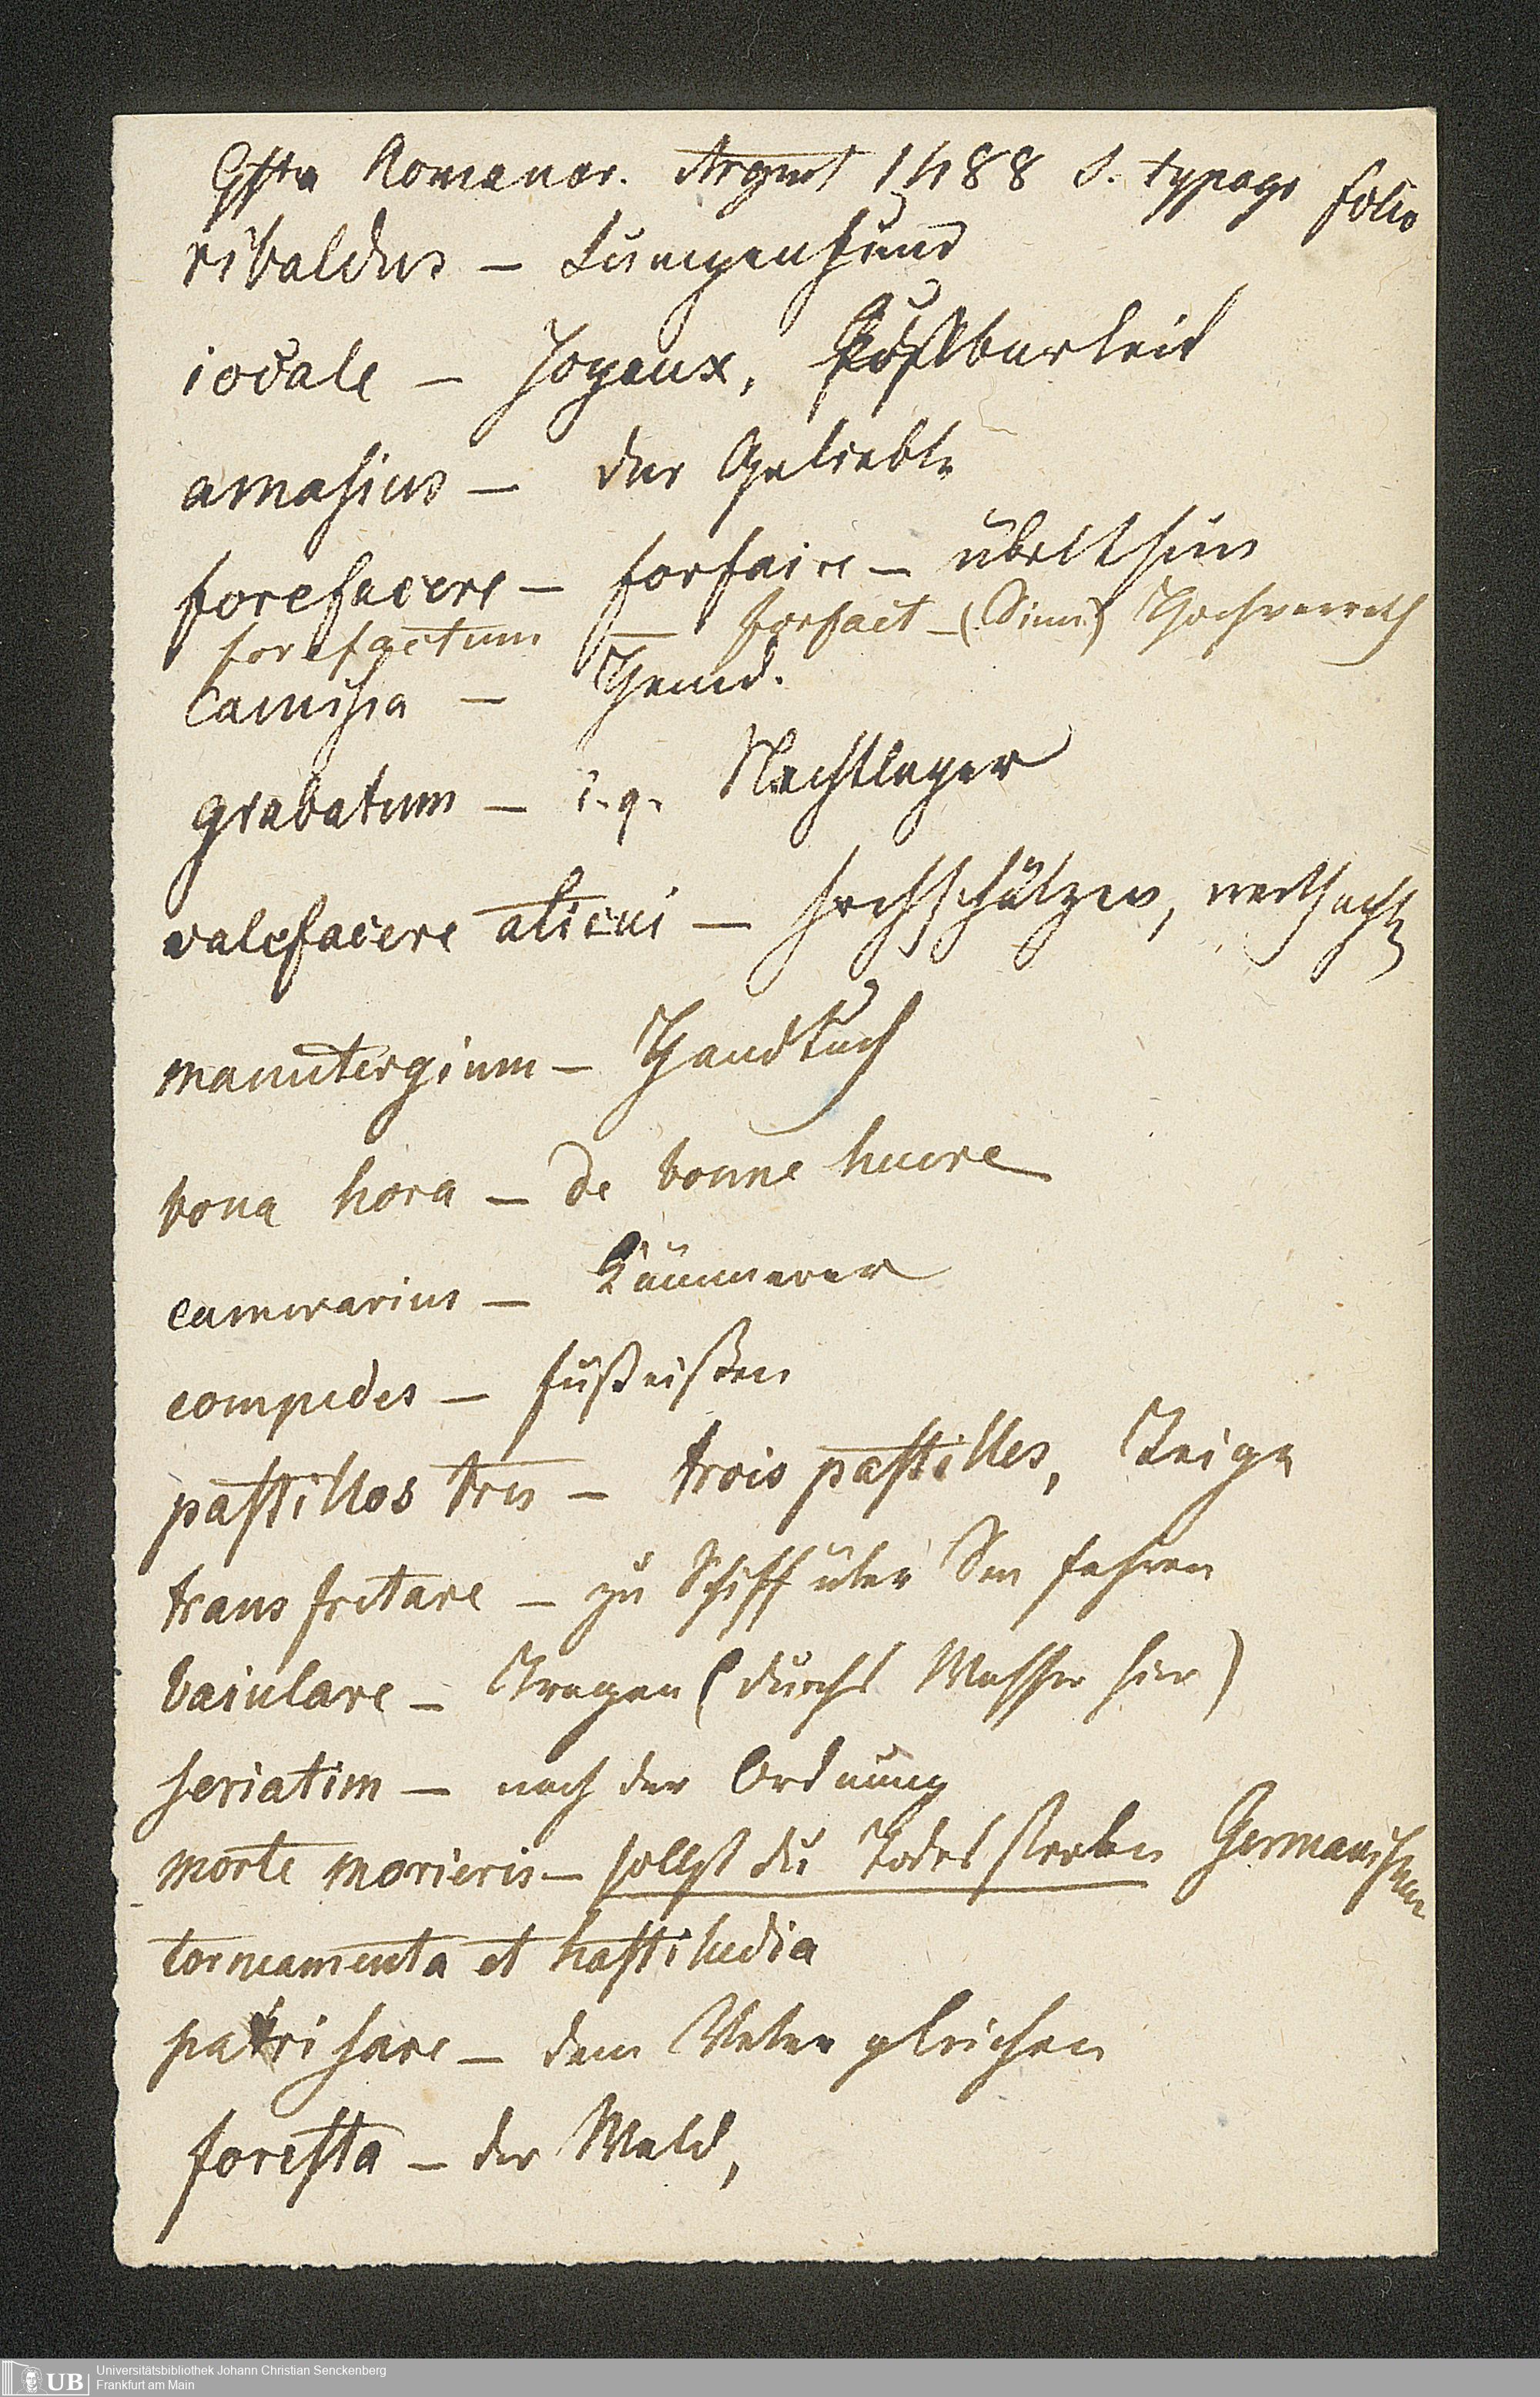 Gesta Romanor. Argent 1488 s. typogr folio
ribaldus – Lumpenhund
iocale – Joyaux, Kostbarkeit
amasius – der Geliebte
forefacere – forfaire – übelthun
forefactum — forfait – (Sinn) Hochverrath
Camisia – Hemd.
grabatum – i. q. Nachtlager
valefacere alicui – hochschätzen, werthacht
manutergium – Handtuch
bona hora – de bonne heure
camerarius – Kämmerer
compedes – Fußeißen
pastillos tres – trois pastilles, Teige
transfretare – zu Schiff über See fahren
baiulare – Tragen (durchs Wasser hier)
seriatim – nach der Ordnung
morte morieris – sollst du Todes sterben Germanismen
torneamenta et hastiludia
patrisare – dem Vater gleichen
foresta – der Wald,
UB Universitätsbibliothek Johann Christian Senckenberg
Frankfurt am Main